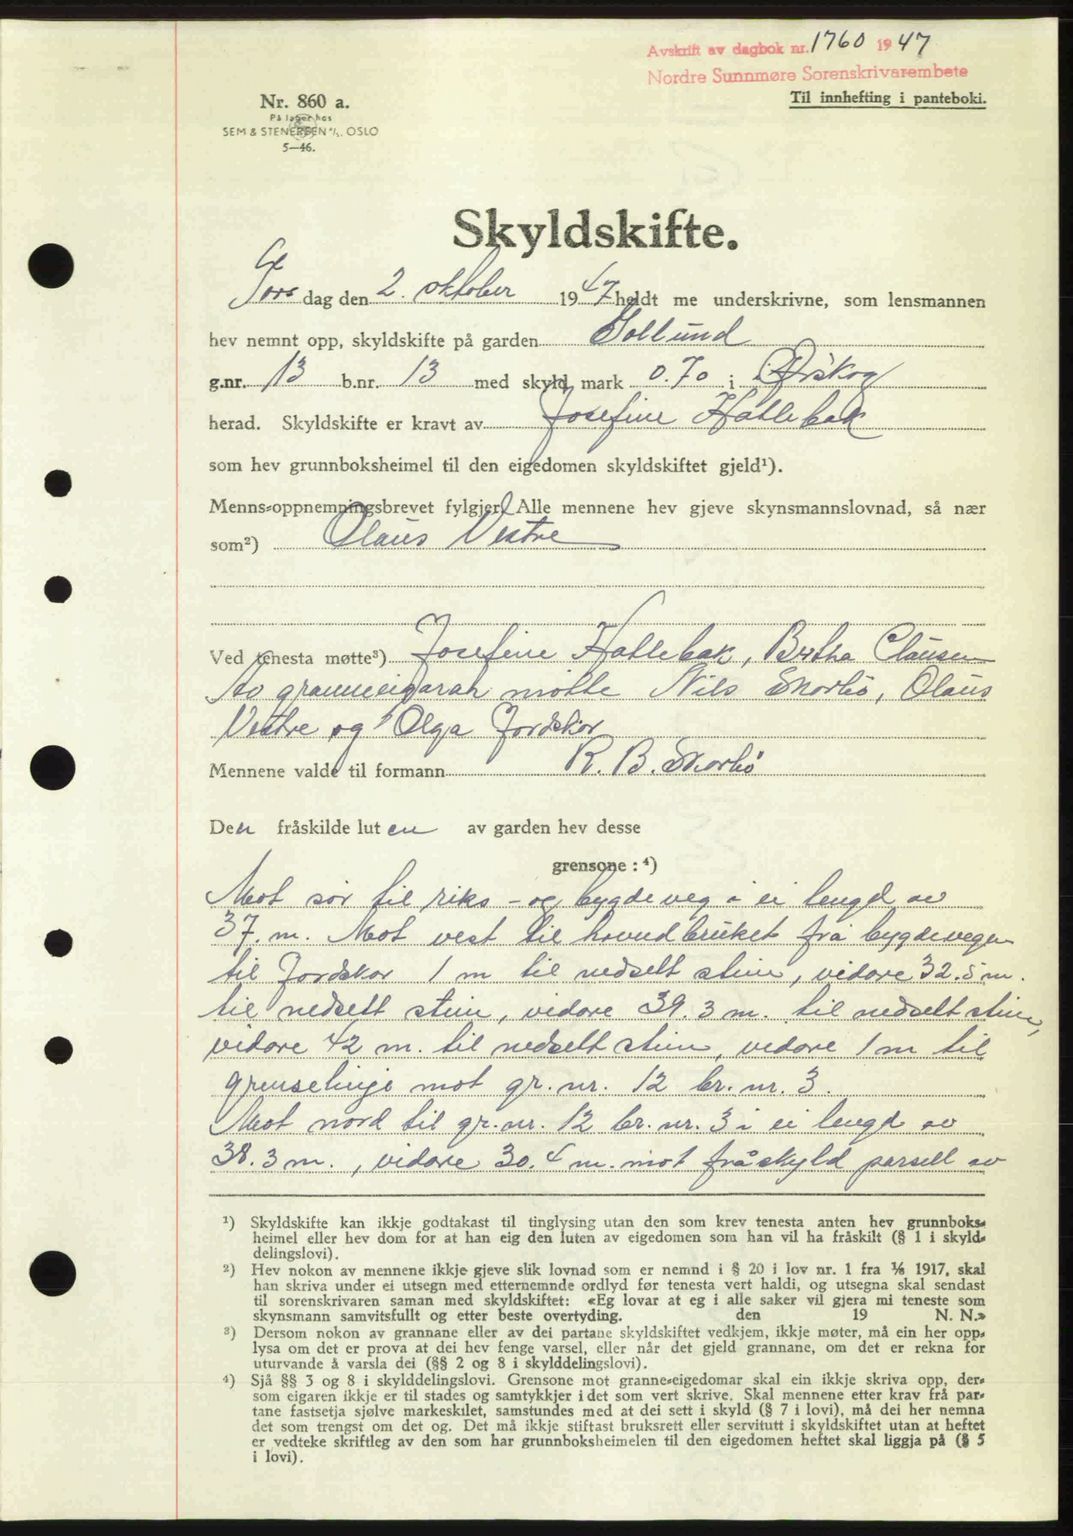 Avskrift av dagbok nr. 1760 1947
Nordre Sunnmøre Sorenskrivarembete
Til innhefting i panteboki.
Nr. 860 a.
På lager hos
SEM & STENERSEN A/S, OSLO
5—46.
Skyldskifte.
Tors dag den 2. oktober 1947 heldt me underskrivne, som lensmannen
hev nemnt opp, skyldskifte på garden Sollund
g.nr. 13 b.nr. 13 med skyld mark 0.70 i Ørskog
herad. Skyldskifte er kravt av Josefine Hatlebak
som hev grunnboksheimel til den eigedomen skyldskiftet gjeld¹).
Menns-oppnemningsbrevet fylgjer. Alle mennene hev gjeve skynsmannslovnad, så nær
som²) Olaus Vestre
Ved tenesta møtte³) Josefine Hatlebak, Bertha Clausen
Av granneeigarar møtte Nils Skorbø, Olaus
Vestre og Olga Jordskor
Mennene valde til formann R. B. Skorbø
Den fråskilde luten av garden hev desse
grensone : ⁴)
Mot sør til riks - og bygdeveg i ei lengd av
37. m. Mot vest til hovudbruket frå bygdevegen
til Jordskor 1 m til nedsett stein, vidare 32.5 m.
til nedsett stein, vidare 39.3 m. til nedsett stein,
vidare 42 m. til nedsett stein, vidare 1 m til
grenselinje mot gr. nr. 12 br. nr. 3.
Mot nord til gr. nr. 12 br. nr. 3 i ei lengd av
38.3 m., vidare 30.4 m. mot fråskyld parsell av
¹) Skyldskifte kan ikkje godtakast til tinglysing utan den som krev tenesta anten hev grunnboks-
heimel eller hev dom for at han eig den luten av eigedomen som han vil ha fråskilt (§ 1 i skyld-
delingslovi).
²) Hev nokon av mennene ikkje gjeve slik lovnad som er nemnd i § 20 i lov nr. 1 fra ⅛ 1917, skal
han skriva under ei utsegn med etternemnde ordlyd før tenesta vert haldi, og utsegna skal sendast
til sorenskrivaren saman med skyldskiftet: «Eg lovar at eg i alle saker vil gjera mi teneste som
skynsmann samvitsfullt og etter beste overtyding. den 19 N. N.»
³) Dersom nokon av grannane eller av dei partane skyldskiftet vedkjem, ikkje møter, må ein her opp-
lysa om det er prova at dei hev fenge varsel, eller når det gjeld grannane, om det er rekna for
uturvande å varsla dei (§§ 2 og 8 i skylddelingslovi).
⁴) Sjå §§ 3 og 8 i skylddelingslovi. Grensone mot granne-eigedomar skal ein ikkje skriva opp, der-
som eigaren ikkje er til stades og samtykkjer i det som vert skrive. Skal mennene etter krav frå par-
tane fastsetja sjølve markeskilet, samstundes med at dei sett i skyld (§ 7 i lovi), må dei her nemna
det som trengst om det og. Det må ikkje stiftast bruksrett eller servitutt i skyldskiftet utan at heftet
er vedteke skriftleg av den som har grunnboksheimelen til den eigedomen heftet skal liggja på (§ 5
i lovi).